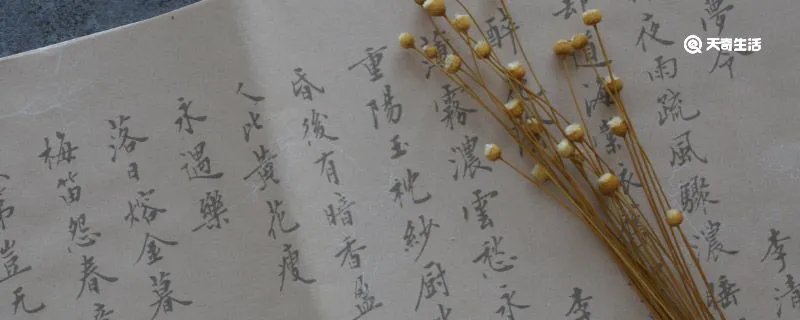 天奇生活
李清
夢令
夜雨疏風驟濃睡
却道海棠依
李
醉
薄霧濃雲愁永
重陽玉枕紗厨
昏後有暗香盈
人比黃花瘦
永遇樂
落日熔金暮
梅笛怨春
豈无